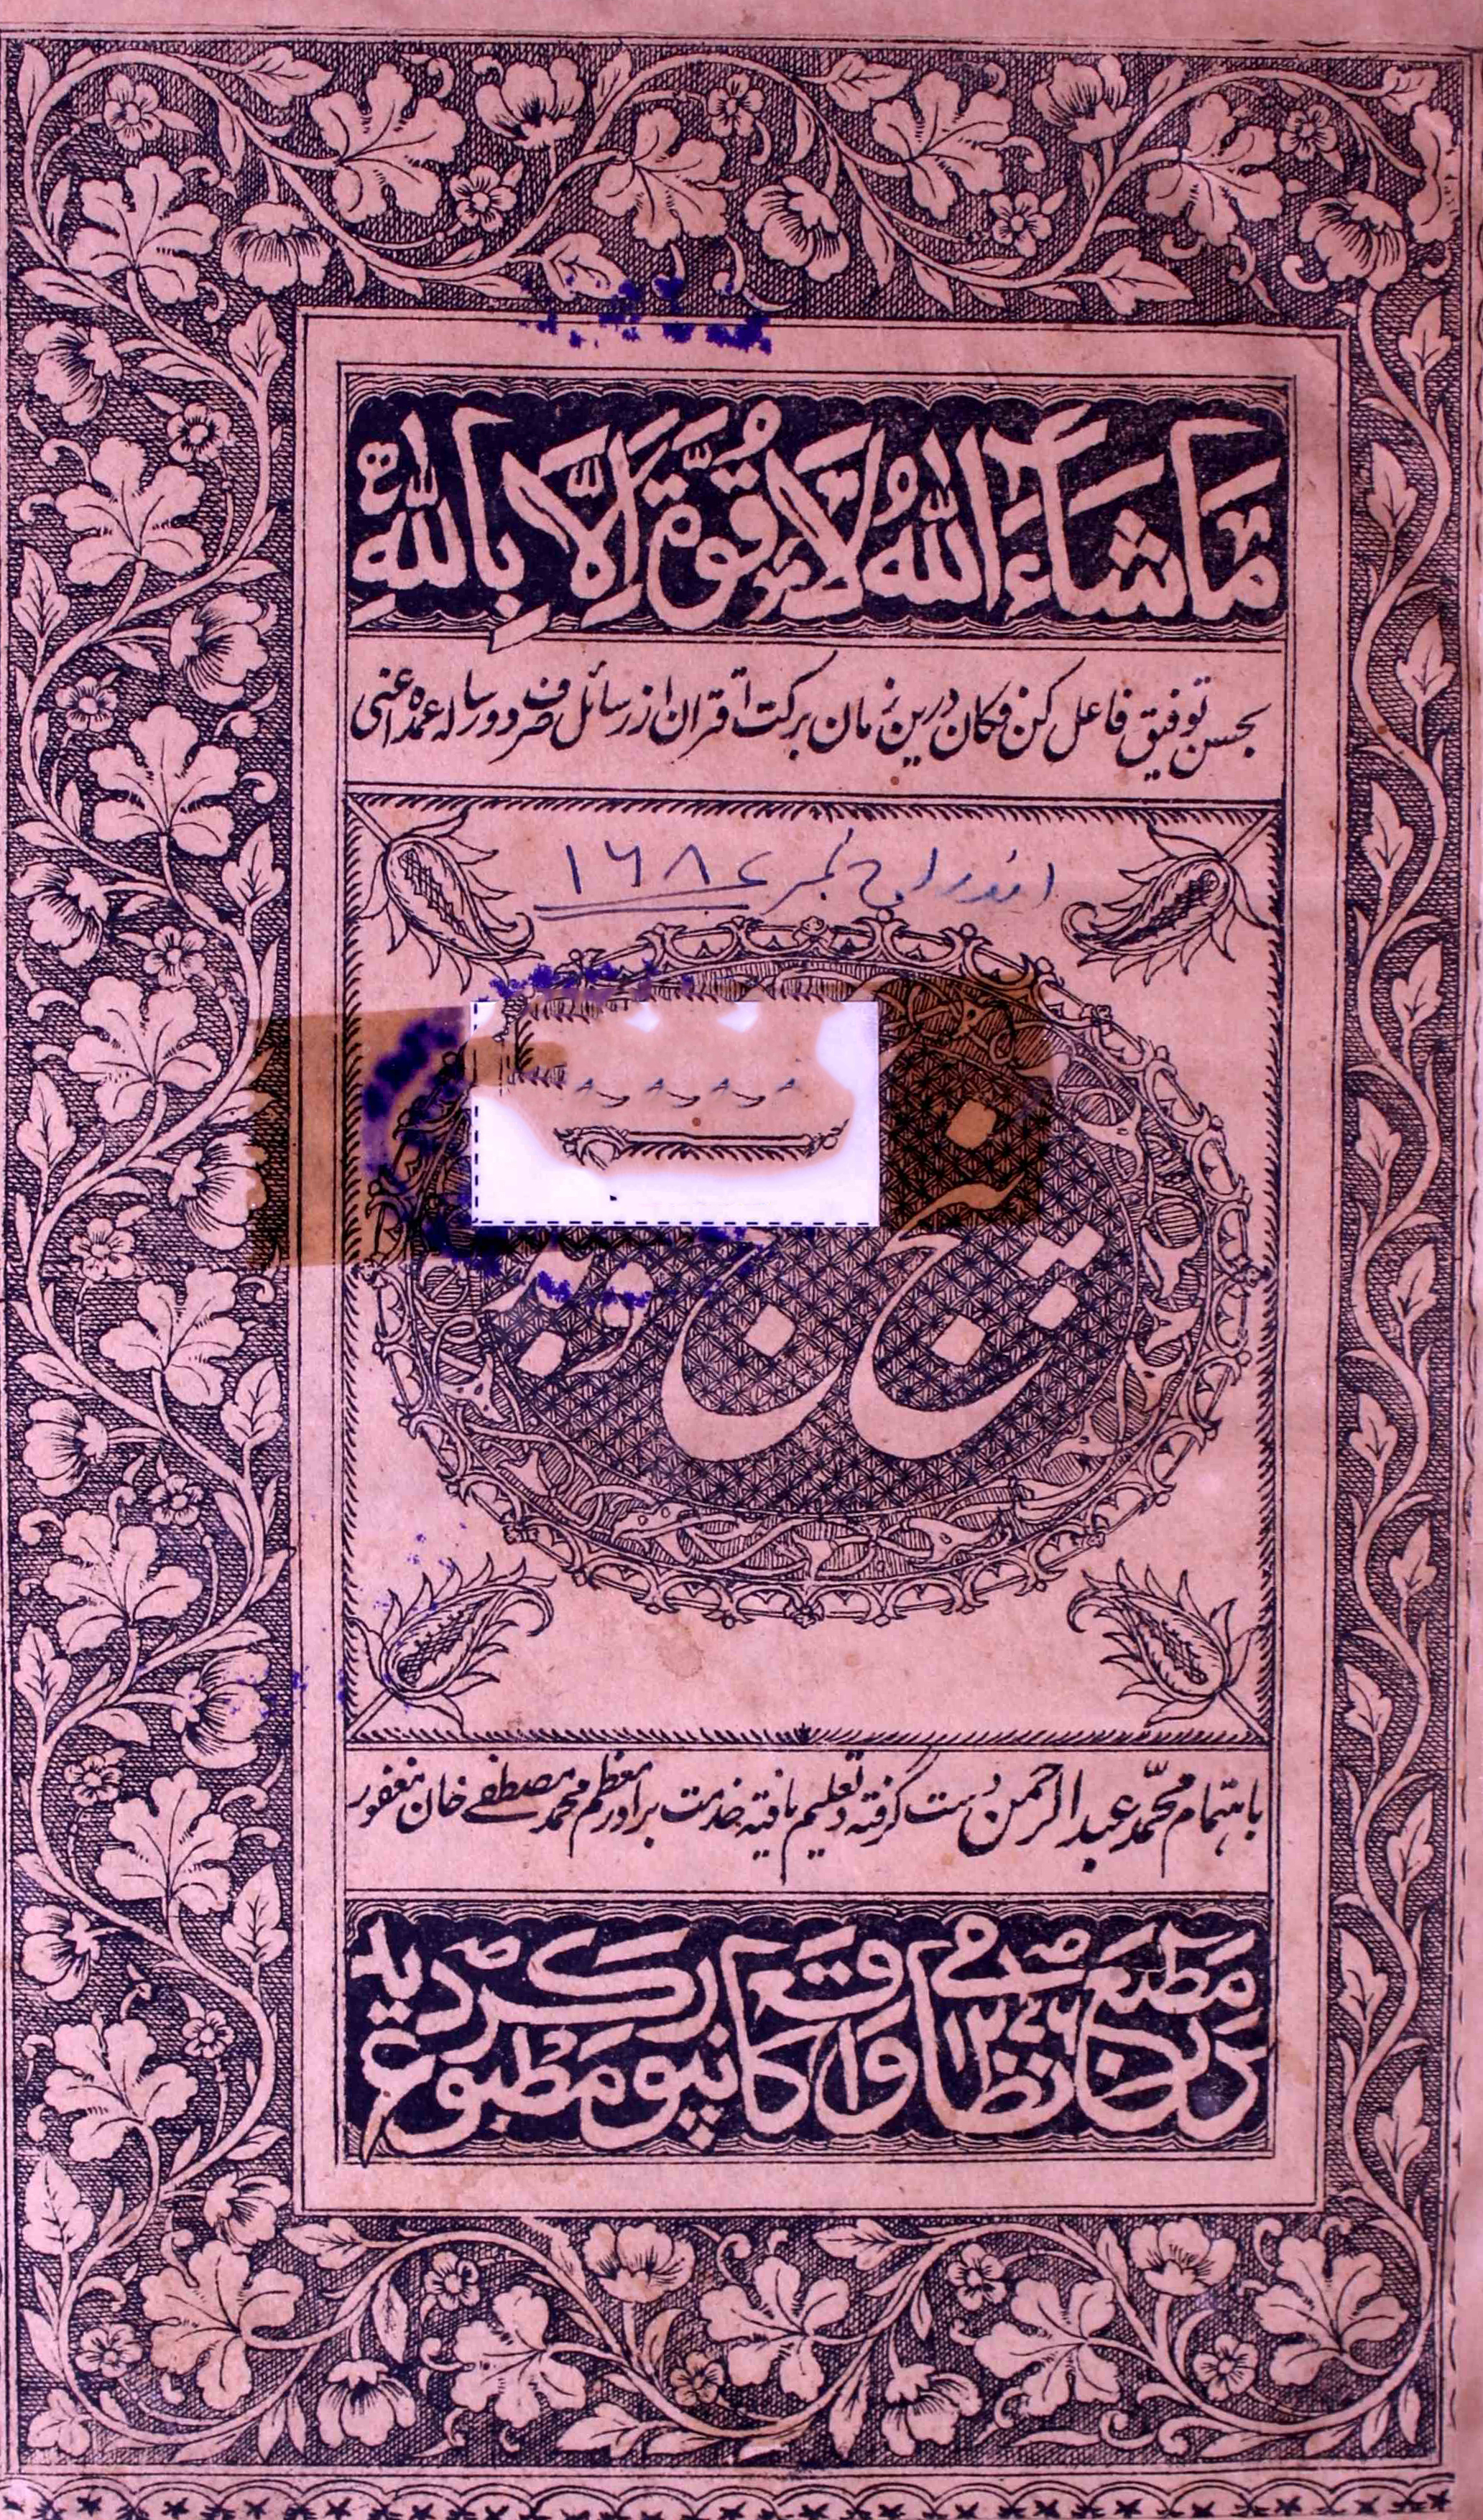 مَا شَآءَ اللّٰهُ لَا قُوَّةَ اِلَّا بِاللّٰهِ
بحسن توفیق فاعل کن فکان درین زمان برکت اقتران از رسائل صرف دو رساله عمده اعنی
اندراج نمبر ۱۶۸۷
پنج گنج و زبدہ
باہتمام محمد عبد الرحمن دست گرفته و تعلیم یافته خدمت برادر معظم محمد مصطفے خان مغفور
مطبع نظامی واقع کانپور مطبوع گردید
۱۲۷۶